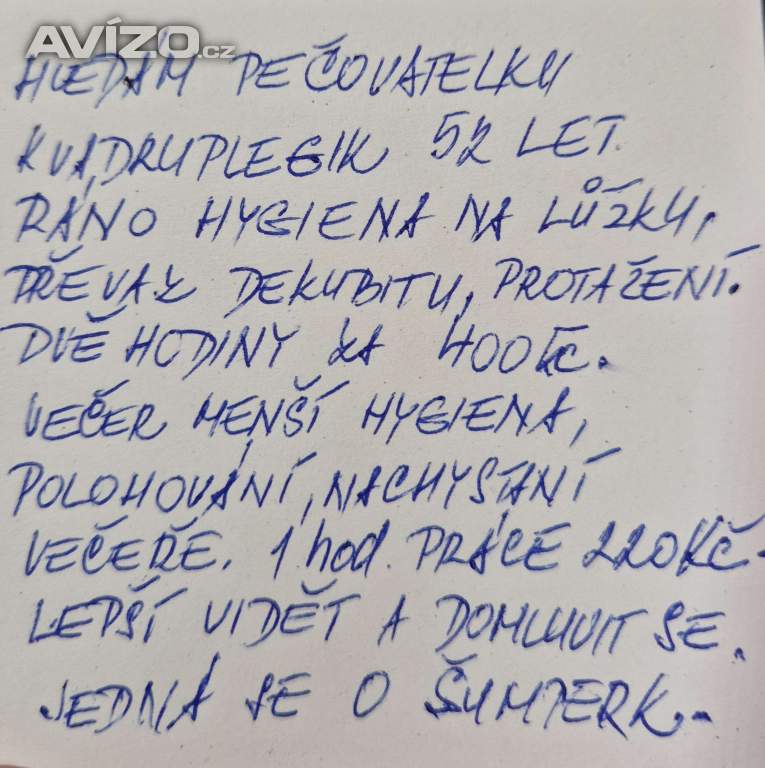 AVÍZO.cz
HLEDÁM PEČOVATELKU
KVADRUPLEGIK 52 LET.
RÁNO HYGIENA NA LŮŽKU,
PŘEVAZ DEKUBITU, PROTAŽENÍ.
DVĚ HODINY ZA 400Kč.
VEČER MENŠÍ HYGIENA,
POLOHOVÁNÍ, NACHYSTÁNÍ
VEČEŘE. 1 hod. PRÁCE 220Kč.
LEPŠÍ VIDĚT A DOMLUVIT SE.
JEDNÁ SE O ŠUMPERK.